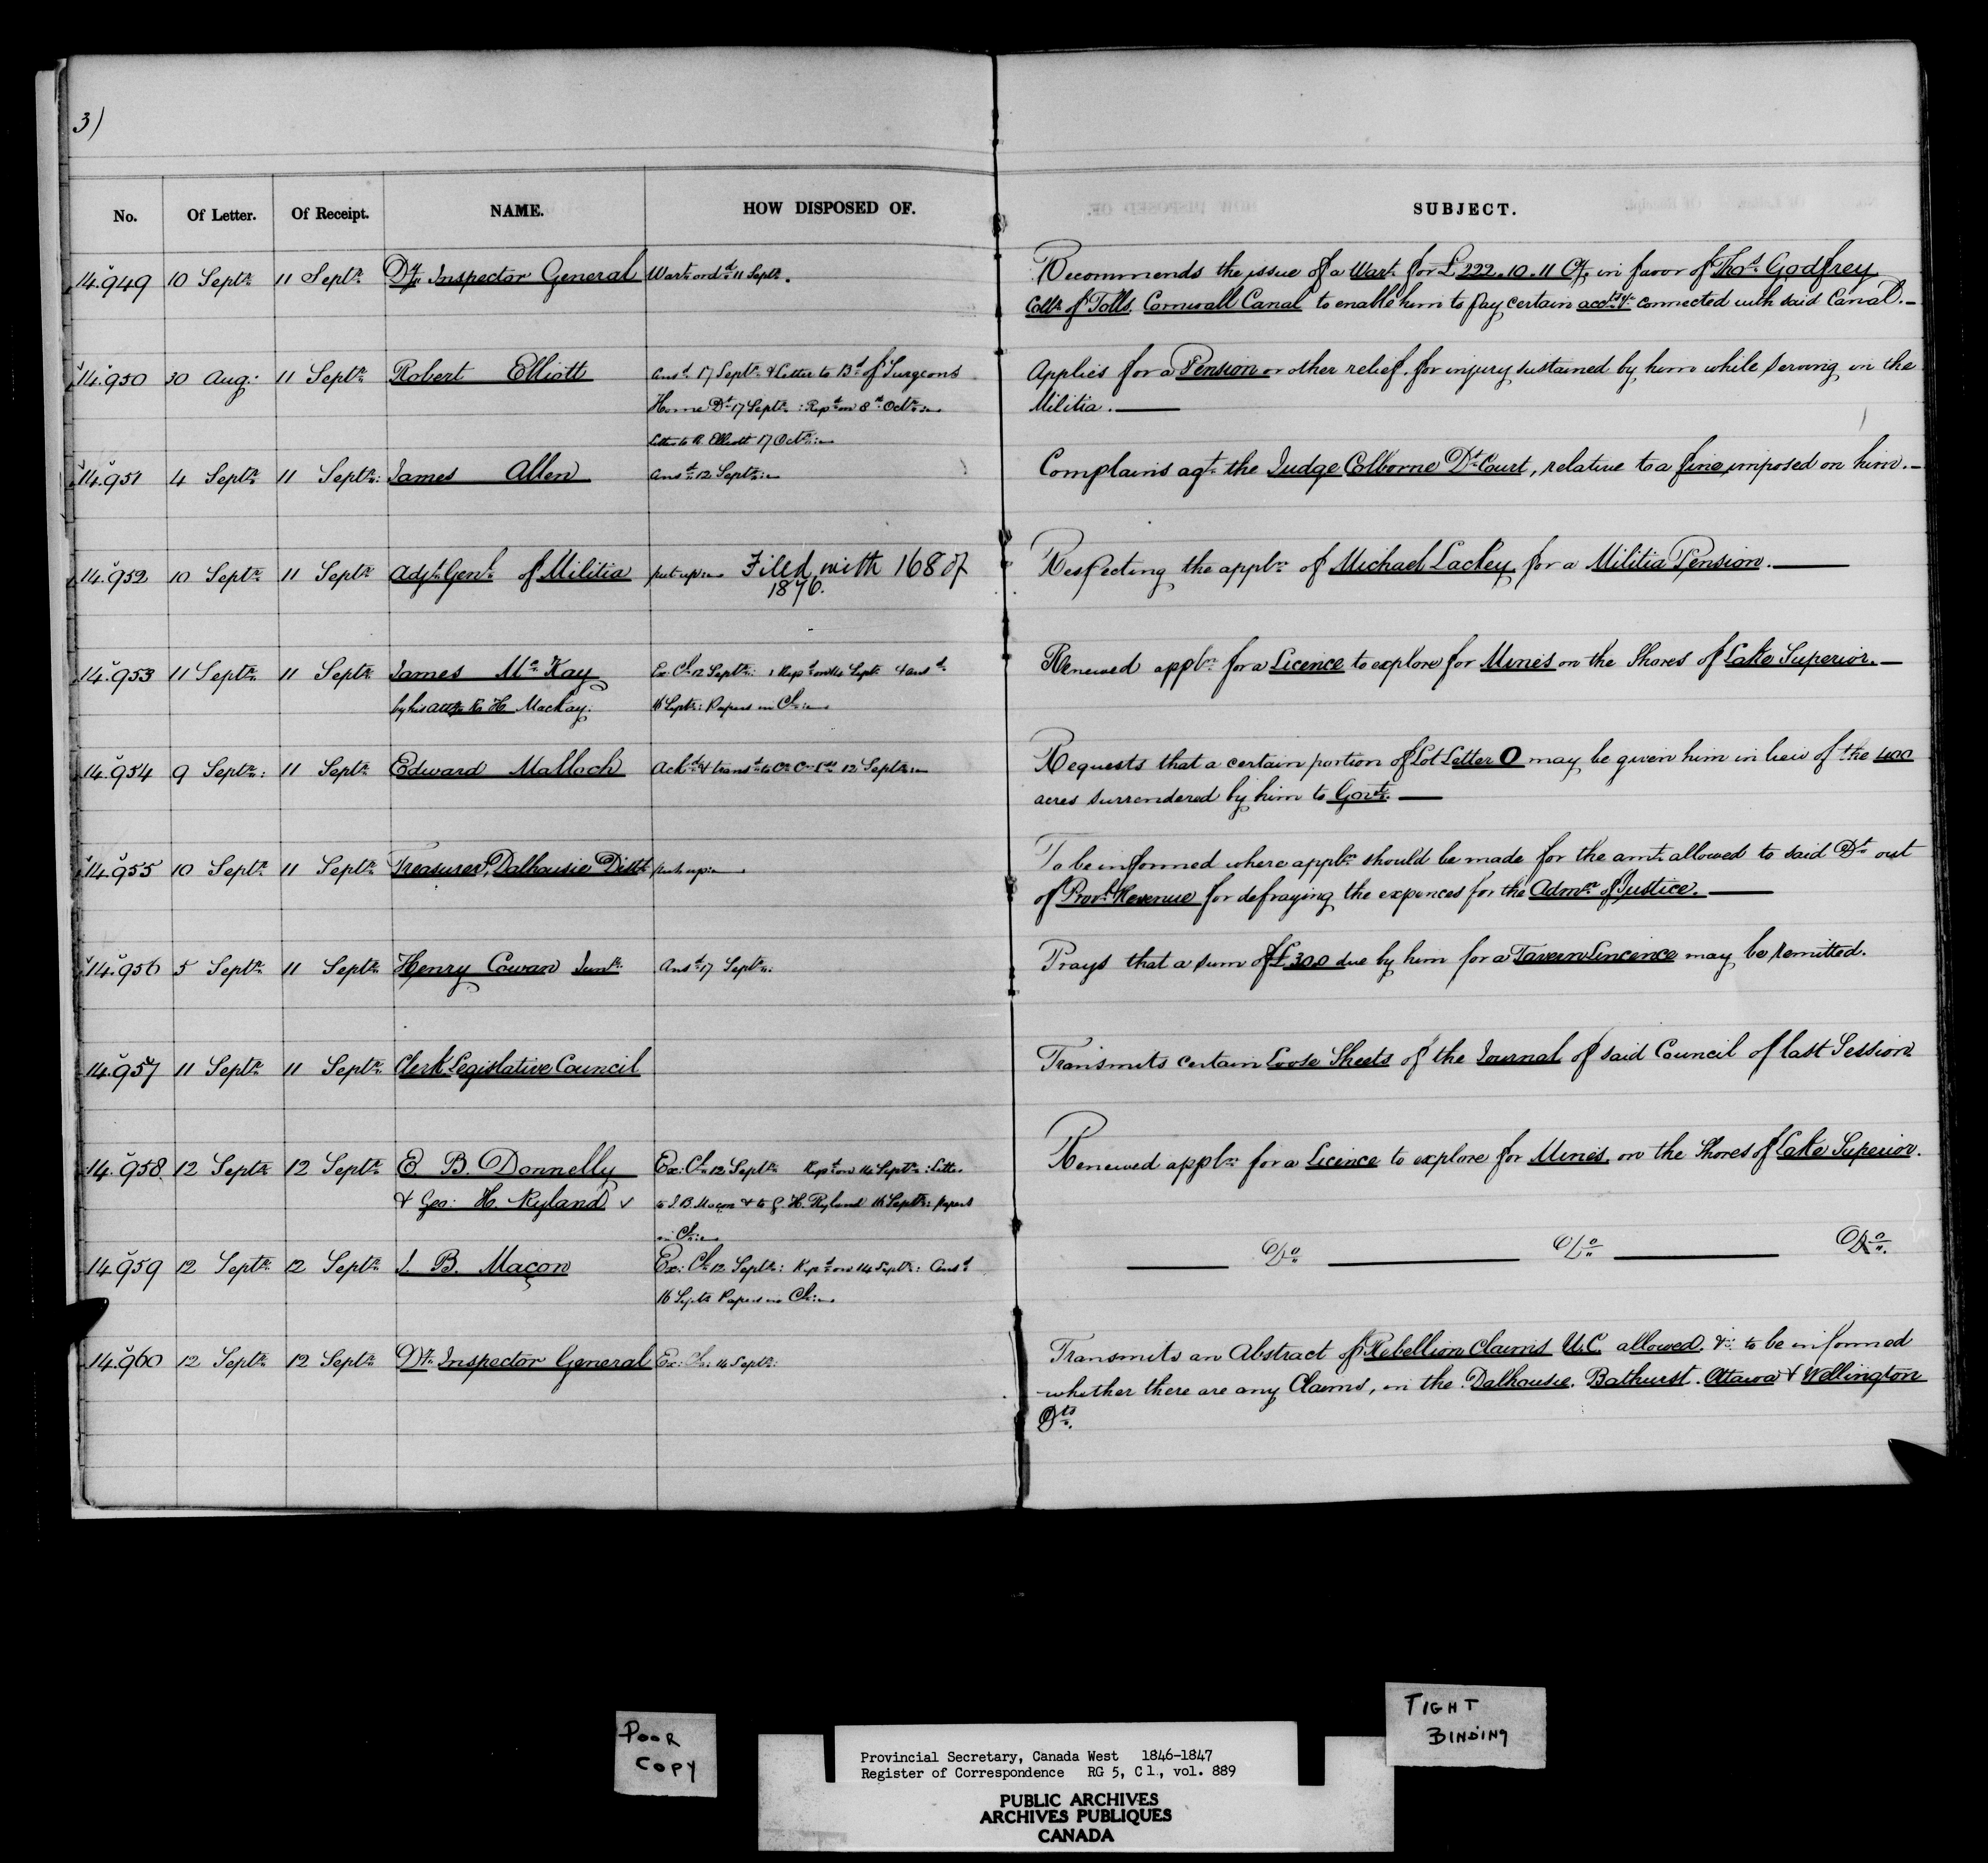 3)
No. Of Letter. Of Receipt. NAME. HOW DISPOSED OF. SUBJECT.
14.949 10 Septr. 11 Septr. Dy. Inspector General Wart. ord. 11 Septr. Recommends the issue of a Wart. for £222.10.11 Cy. in favor of Thos. Godfrey
Collr. of Tolls, Cornwall Canal to enable him to pay certain accts. &c. connected with said Canal.—
14.950 30 Aug: 11 Septr. Robert Elliott Ansd. 17 Septr. & Letter to Bd. of Surgeons Applies for a Pension or other relief for injury sustained by him while serving in the
Home Dt. 17 Septr. : Repd. on 8th Octr. :— Militia.—
Letter to R. Elliott 17 Octr. :—
14.951 4 Septr. 11 Septr. James Allen Ansd. 12 Septr. :— Complains agt. the Judge Colborne Dt. Court, relative to a fine imposed on him.—
14.952 10 Septr. 11 Septr. Adjt. Genl. of Militia put up :— Filed with 168 of Respecting the appln. of Michael Lackey for a Militia Pension.—
1876.
14.953 11 Septr. 11 Septr. James McKay Ex. Cl. 12 Septr. : Repd. on 14 Septr. & ansd. Renewed appln. for a Licence to explore for Mines on the Shores of Lake Superior.—
by his atty. R. H. Mackay. 16 Septr. : Papers in Cl. :—
14.954 9 Septr. : 11 Septr. Edward Malloch Ackd. & transd. to Cn. C. 12 Septr. :— Requests that a certain portion of Lot Letter O may be given him in lieu of the 400
acres surrendered by him to Govt.—
14.955 10 Septr. 11 Septr. Treasurer, Dalhousie Distt. put up :— To be informed where appln. should be made for the amt. allowed to said Dt. out
of Provl. Revenue for defraying the expences for the Admn. of Justice.—
14.956 5 Septr. 11 Septr. Henry Cowan Junr. Ansd. 17 Septr. Prays that a sum of £30.0 due by him for a Tavern Lincence may be remitted.
14.957 11 Septr. 11 Septr. Clerk Legislative Council Transmits certain Loose Sheets of the Journal of said Council of last Session
14.958 12 Septr. 12 Septr. E. B. Donnelly Ex: Cl. 12 Septr. Repd. on 14 Septr. : Letter Renewed appln. for a Licence to explore for Mines on the Shores of Lake Superior.
& Geo: H. Ryland to J. B. Maçon & to G. H. Ryland 16 Septr. : papers
in Cl. :—
14.959 12 Septr. 12 Septr. J. B. Maçon Ex: Cl. 12 Septr. : Repd. on 14 Septr. : Ansd. — Do. — Do. — Do.
16 Septr. Papers in Cl. :—
14.960 12 Septr. 12 Septr. Dy. Inspector General Ex: Cl. : 14 Septr. : Transmits an Abstract of Rebellion Claims U.C. allowed. & to be informed
whether there are any Claims, in the Dalhousie, Bathurst, Ottawa & Wellington
Dts.
POOR
COPY
TIGHT
BINDING
Provincial Secretary, Canada West 1846-1847
Register of Correspondence RG 5, C l., vol. 889
PUBLIC ARCHIVES
ARCHIVES PUBLIQUES
CANADA